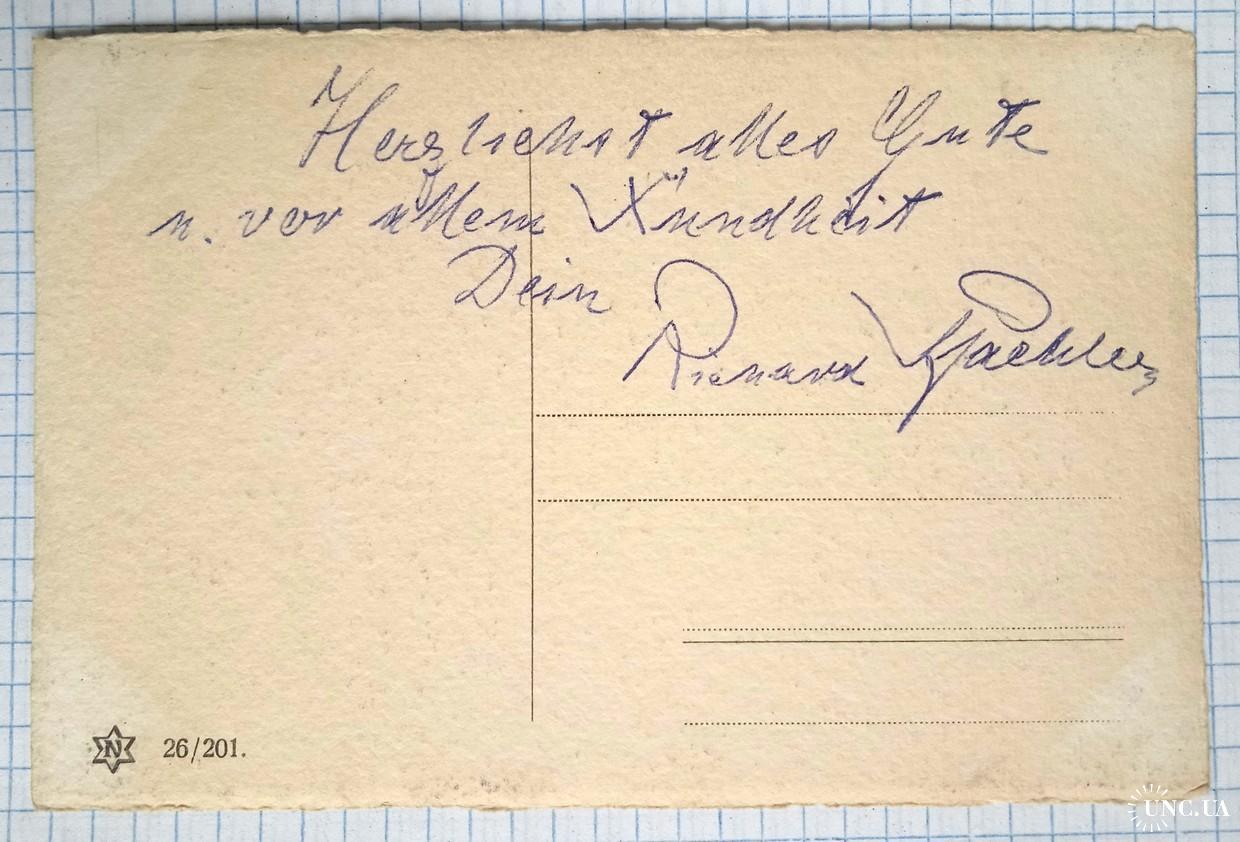 Herzlichst alles Gute
u. vor allem Xundheit
Dein
Richard
N 26/201.
UNC.UA